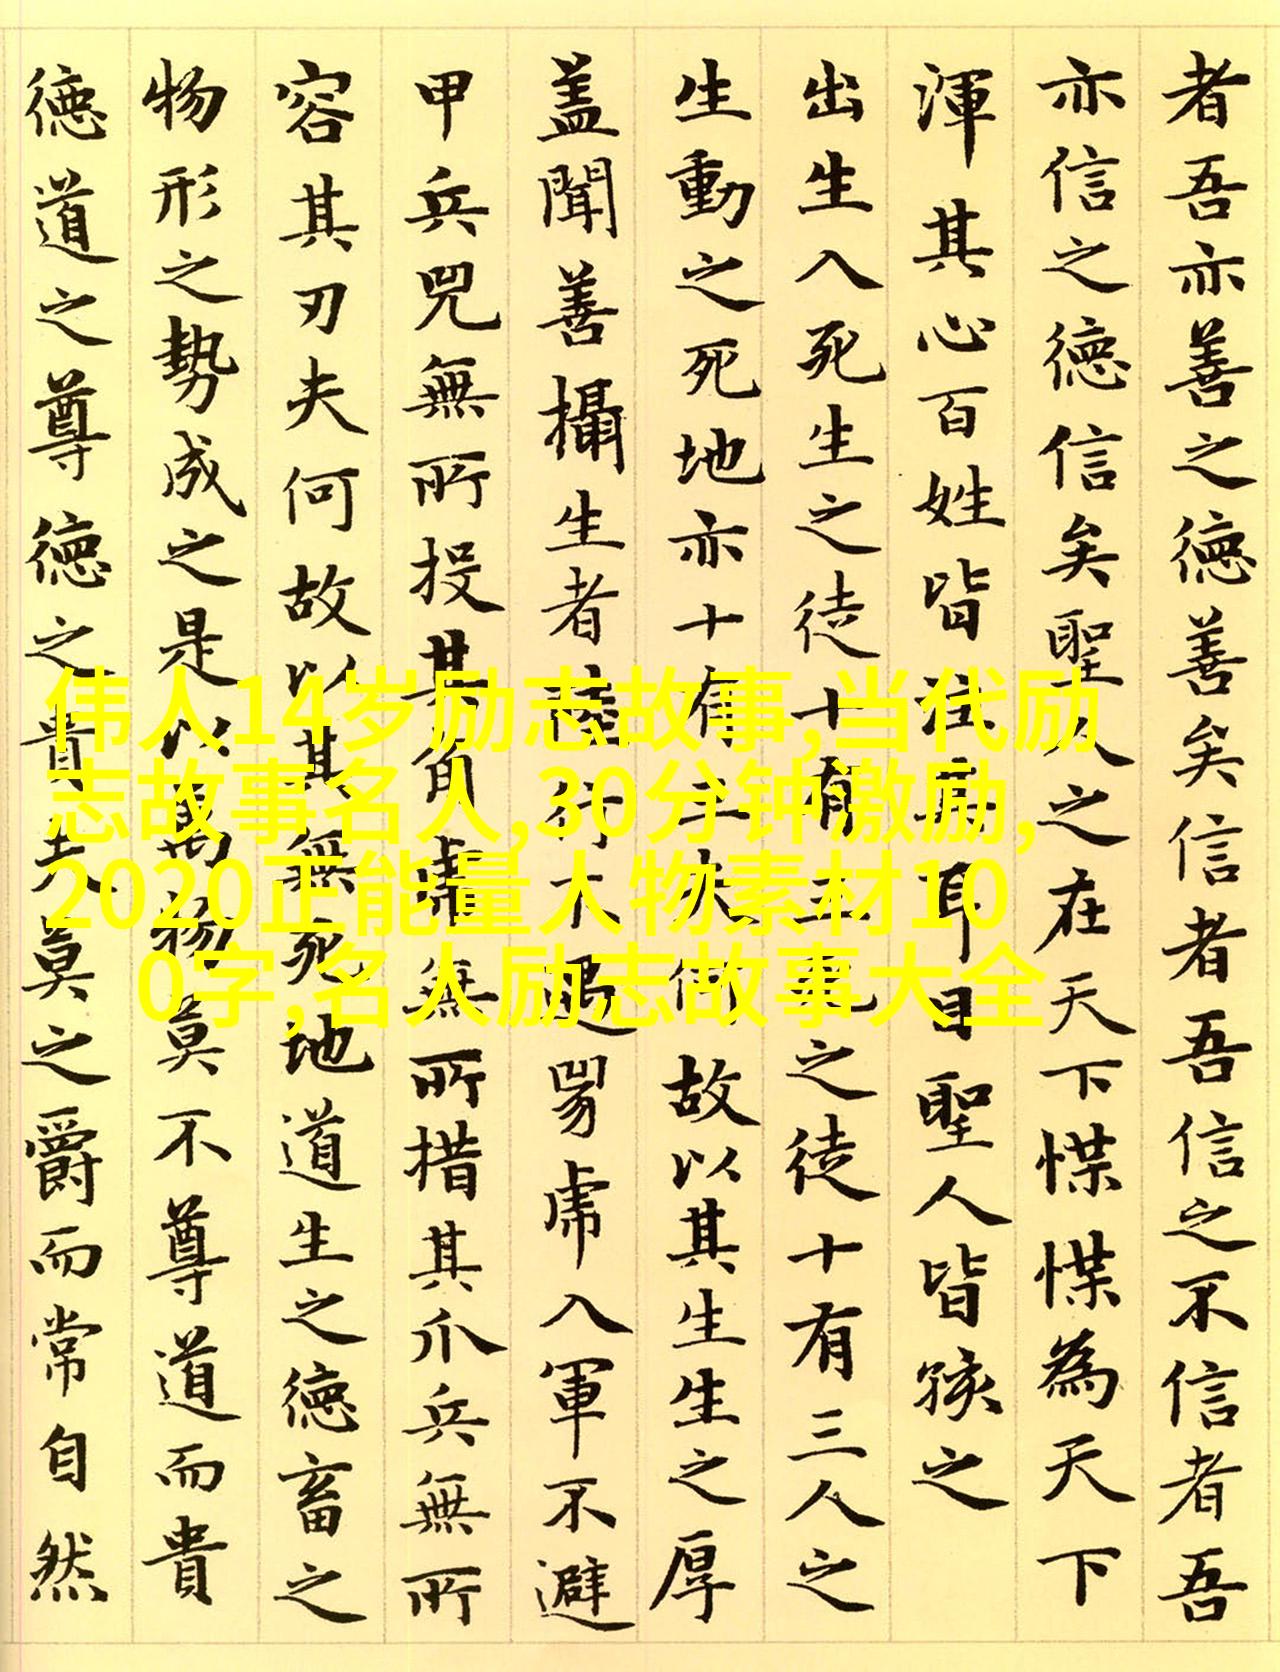 者吾亦善之德善矣信者吾信之不信者吾
亦信之德信矣聖人之在天下惵惵為天下
渾其心百姓皆注其耳目聖人皆孩之
出生入死生之徒十有三死之徒十有三人之
生動之死地亦十有三夫何故以其生生之厚
蓋聞善攝生者陸行不遇兕虎入軍不避
甲兵兕無所投其角虎無所措其爪兵無所
容其刃夫何故以其無死地道生之德畜之
物形之勢成之是以萬物莫不尊道而貴
德道之尊德之貴夫莫之爵而常自然
伟人14岁励志故事,当代励
志故事名人,30分钟激励,
2020正能量人物素材10
0字,名人励志故事大全